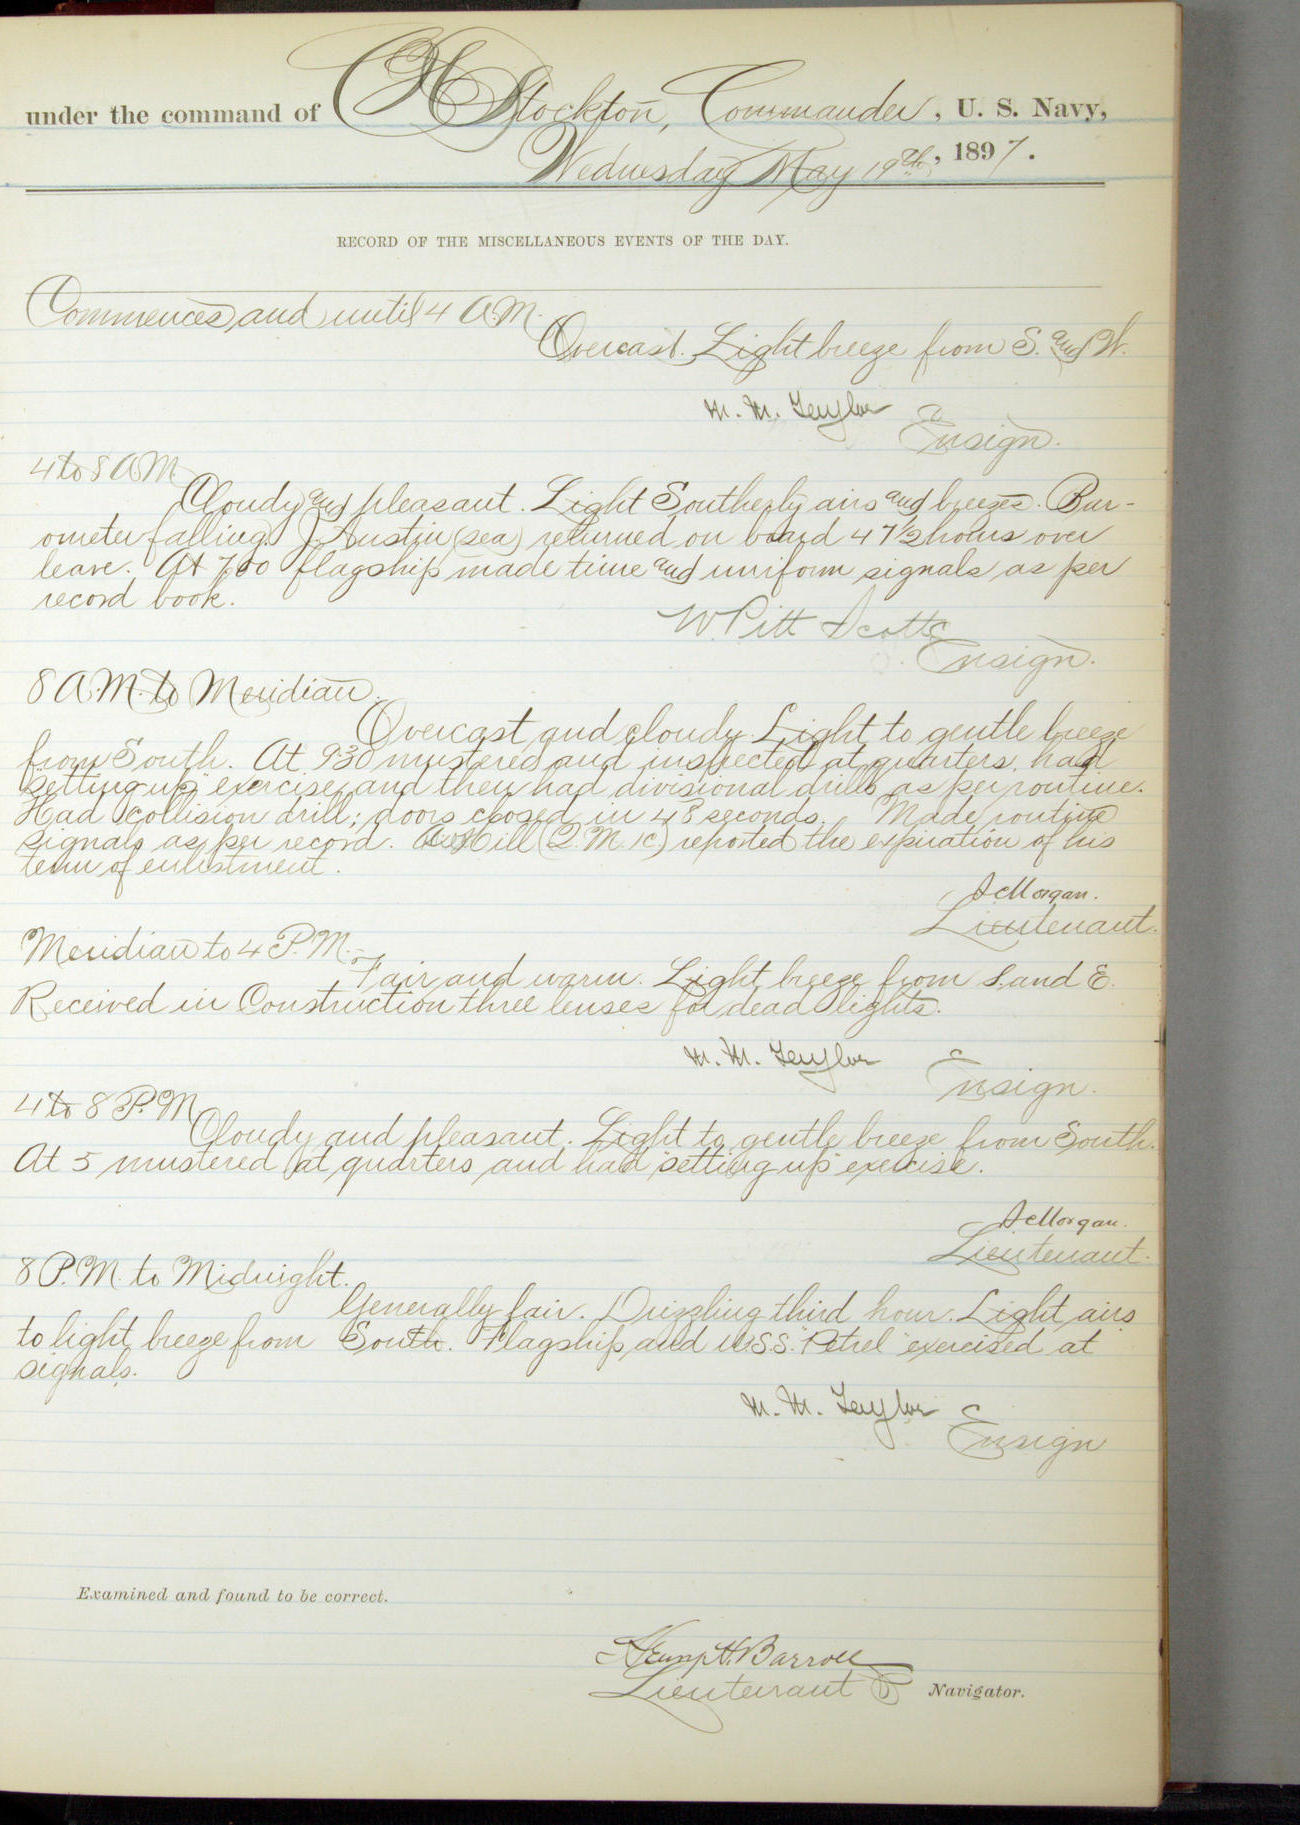 under the command of C H Stockton, Commander, U. S. Navy,
Wednesday May 19th, 1897.
RECORD OF THE MISCELLANEOUS EVENTS OF THE DAY.
Commences and until 4 A.M.
Overcast. Light breeze from S. and W.
M. M. Taylor
Ensign.
4 to 8 A.M.
Cloudy and pleasant. Light Southerly airs and breezes. Bar-
ometer falling. J. Austin (sea) returned on board 47½ hours over
leave. At 7.00 flagship made time and uniform signals as per
record book.
W Pitt Scott
Ensign.
8 A.M. to Meridian.
Overcast and cloudy. Light to gentle breeze
from South. At 9.30 mustered and inspected at quarters, had
"setting up" exercise, and then had divisional drills as per routine.
Had collision drill; doors closed in 48 seconds. Made routine
signals as per record. Hill (Q.M. 1c) reported the expiration of his
term of enlistment.
Morgan.
Lieutenant.
Meridian to 4 P.M.
Fair and warm. Light breeze from S. and E.
Received in Construction three lenses for dead lights.
M. M. Taylor
Ensign.
4 to 8 P.M.
Cloudy and pleasant. Light to gentle breeze from South.
At 5 mustered at quarters and had "setting up" exercise.
Morgan.
Lieutenant.
8 P.M. to Midnight.
Generally fair. Drizzling third hour. Light airs
to light breeze from South. Flagship and U.S.S. "Petrel" exercised at
signals.
M. M. Taylor
Ensign
Examined and found to be correct.
Henry H. Barroll
Lieutenant Navigator.